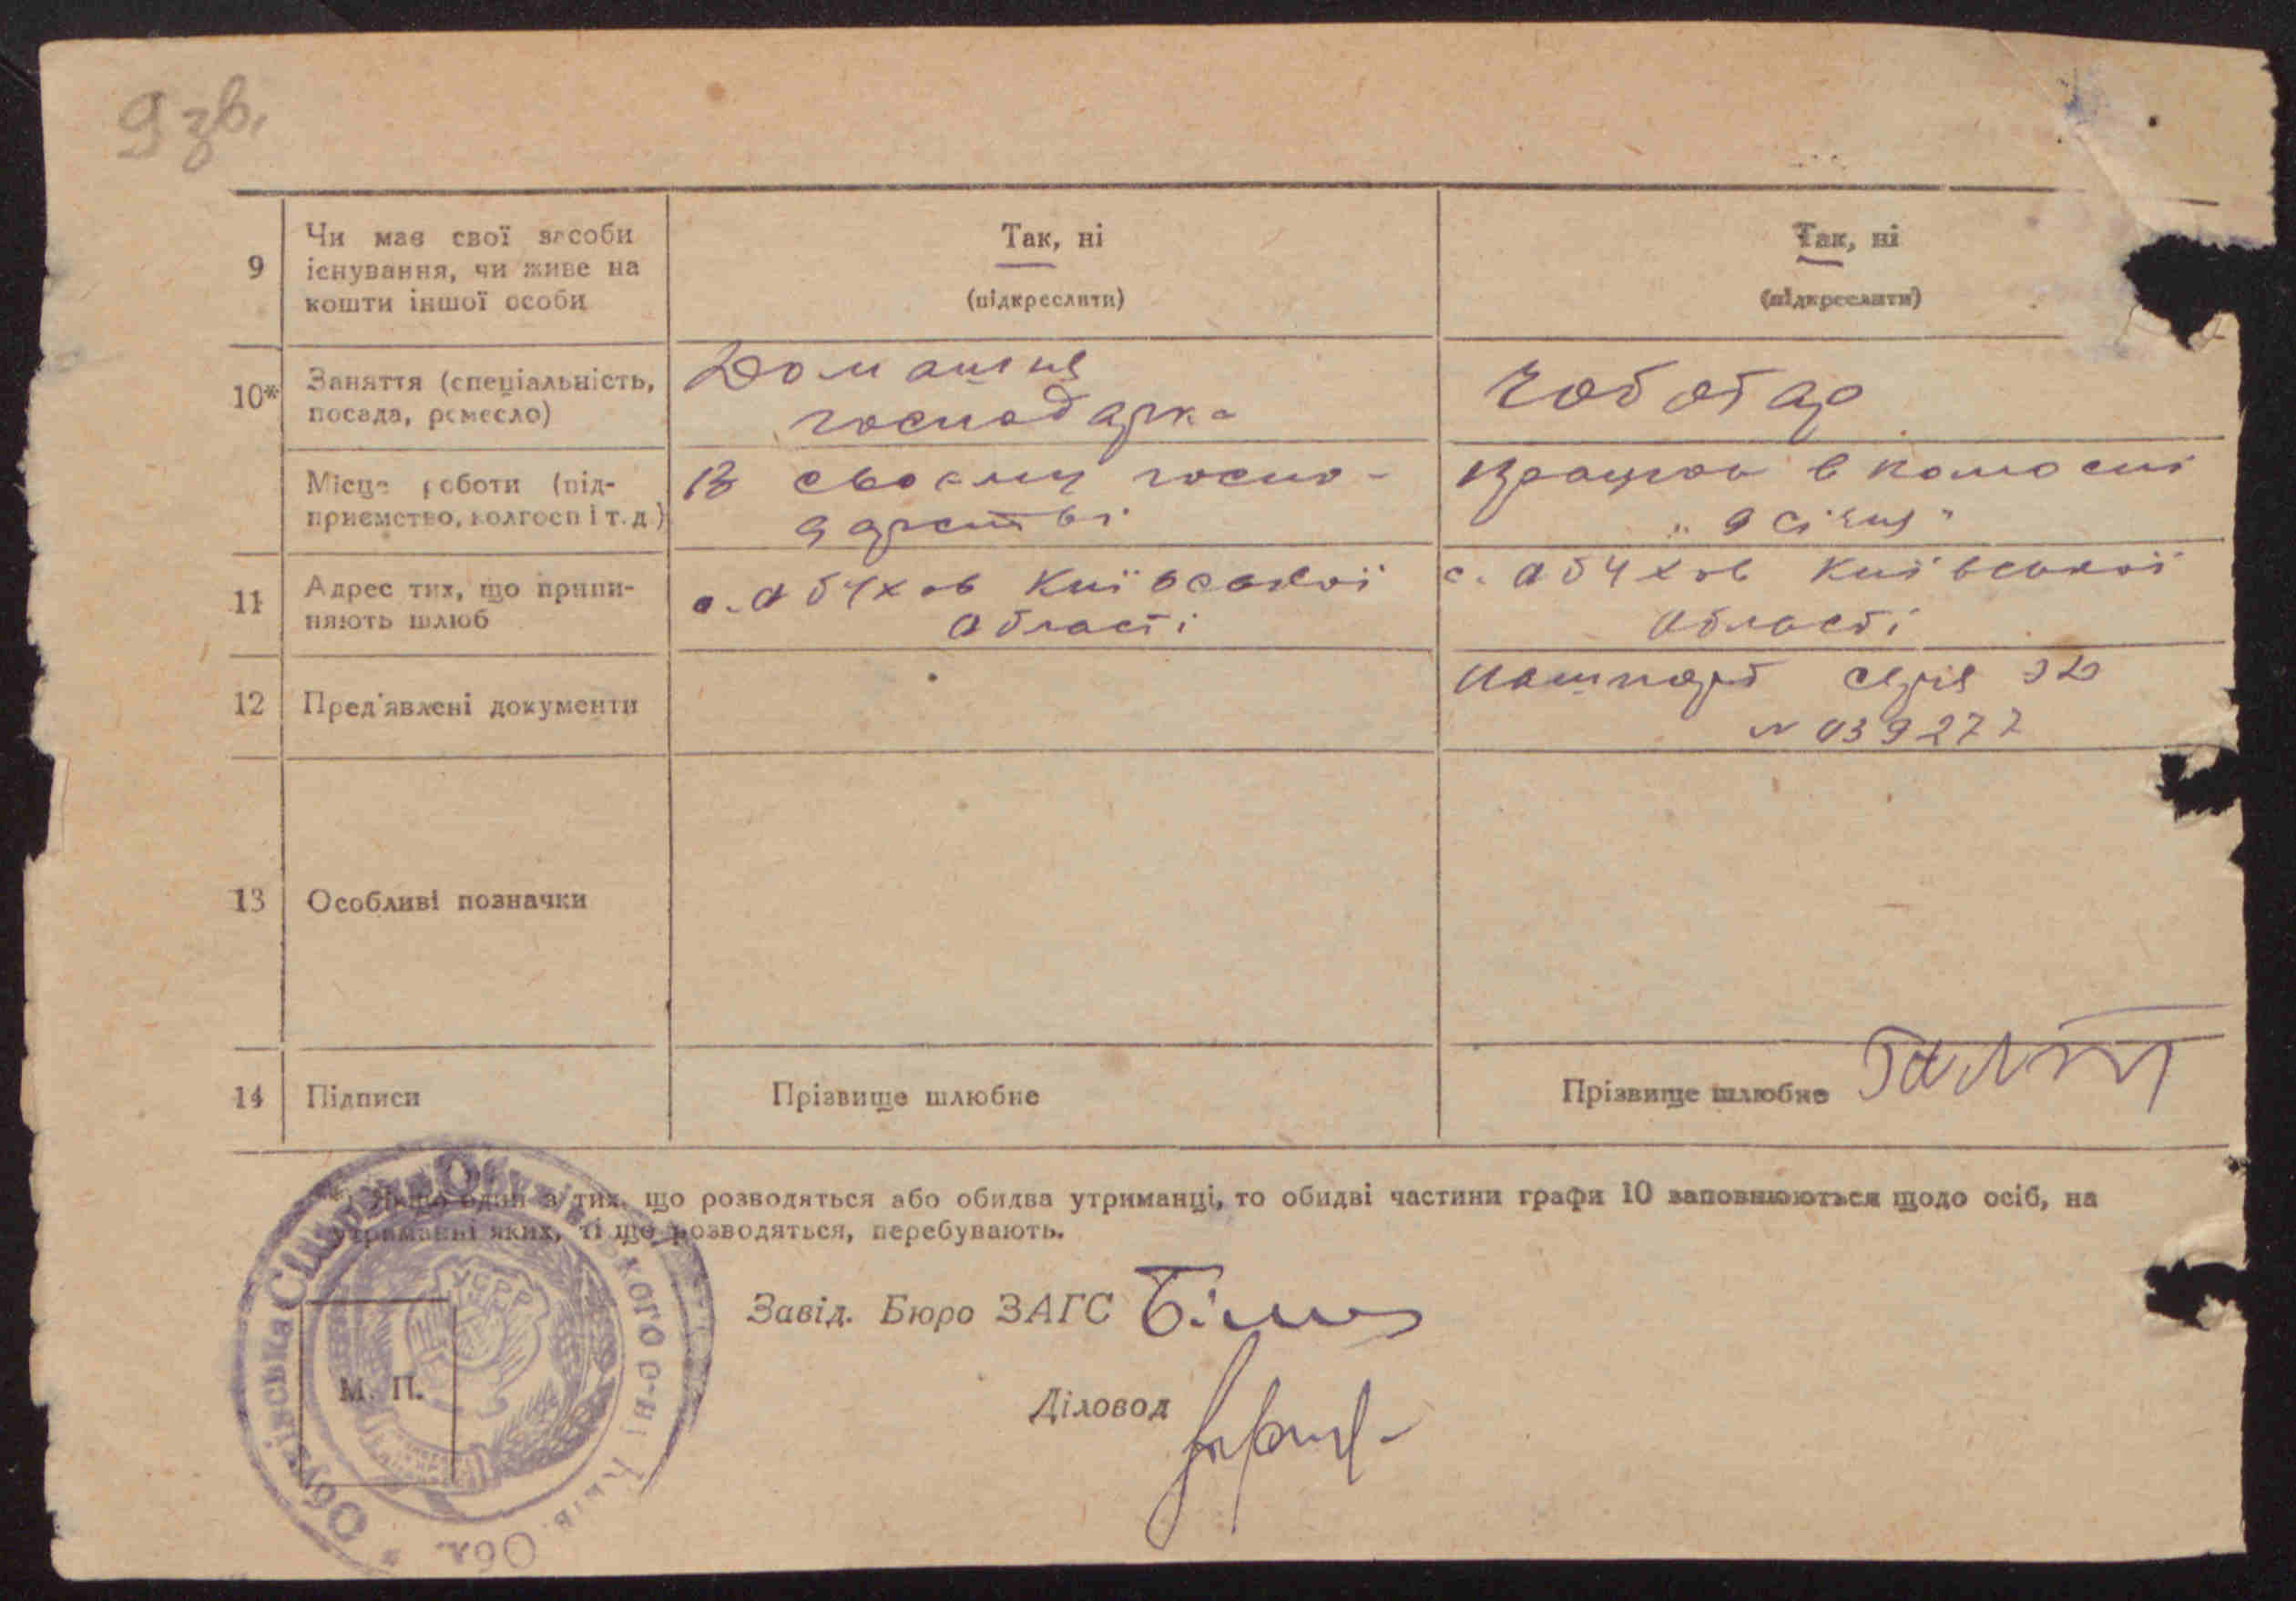 9 зв.
9
Чи має свої засоби
існування, чи живе на
кошти іншої особи
Так, ні
(підкреслити)
Так, ні
(підкреслити)
10*
Заняття (спеціальність,
посада, ремесло)
Домашня
господарка
Чоботар
Місце роботи (під-
приємство, колгосп і т. д.)
В своєму госпо-
дарстві
Працює в колгоспі
„ 9 Січня "
11
Адрес тих, що припи-
няють шлюб
с. Обухов Київської
Області
с. Обухов Київської
Області
12
Пред'явлені документи
Пашпорт серія
N 039277
13
Особливі позначки
14
Підписи
Прізвище шлюбне
Прізвище шлюбне
*) Якщо один з тих, що розводяться або обидва утриманці, то обидві частини графи 10 заповнюються щодо осіб, на
утриманні яких, ті що розводяться, перебувають.
Завід. Бюро ЗАГС
Діловод
М. П.
Обухівська Сільрада Обухівського р-ну Київ. Обл.
УСРР